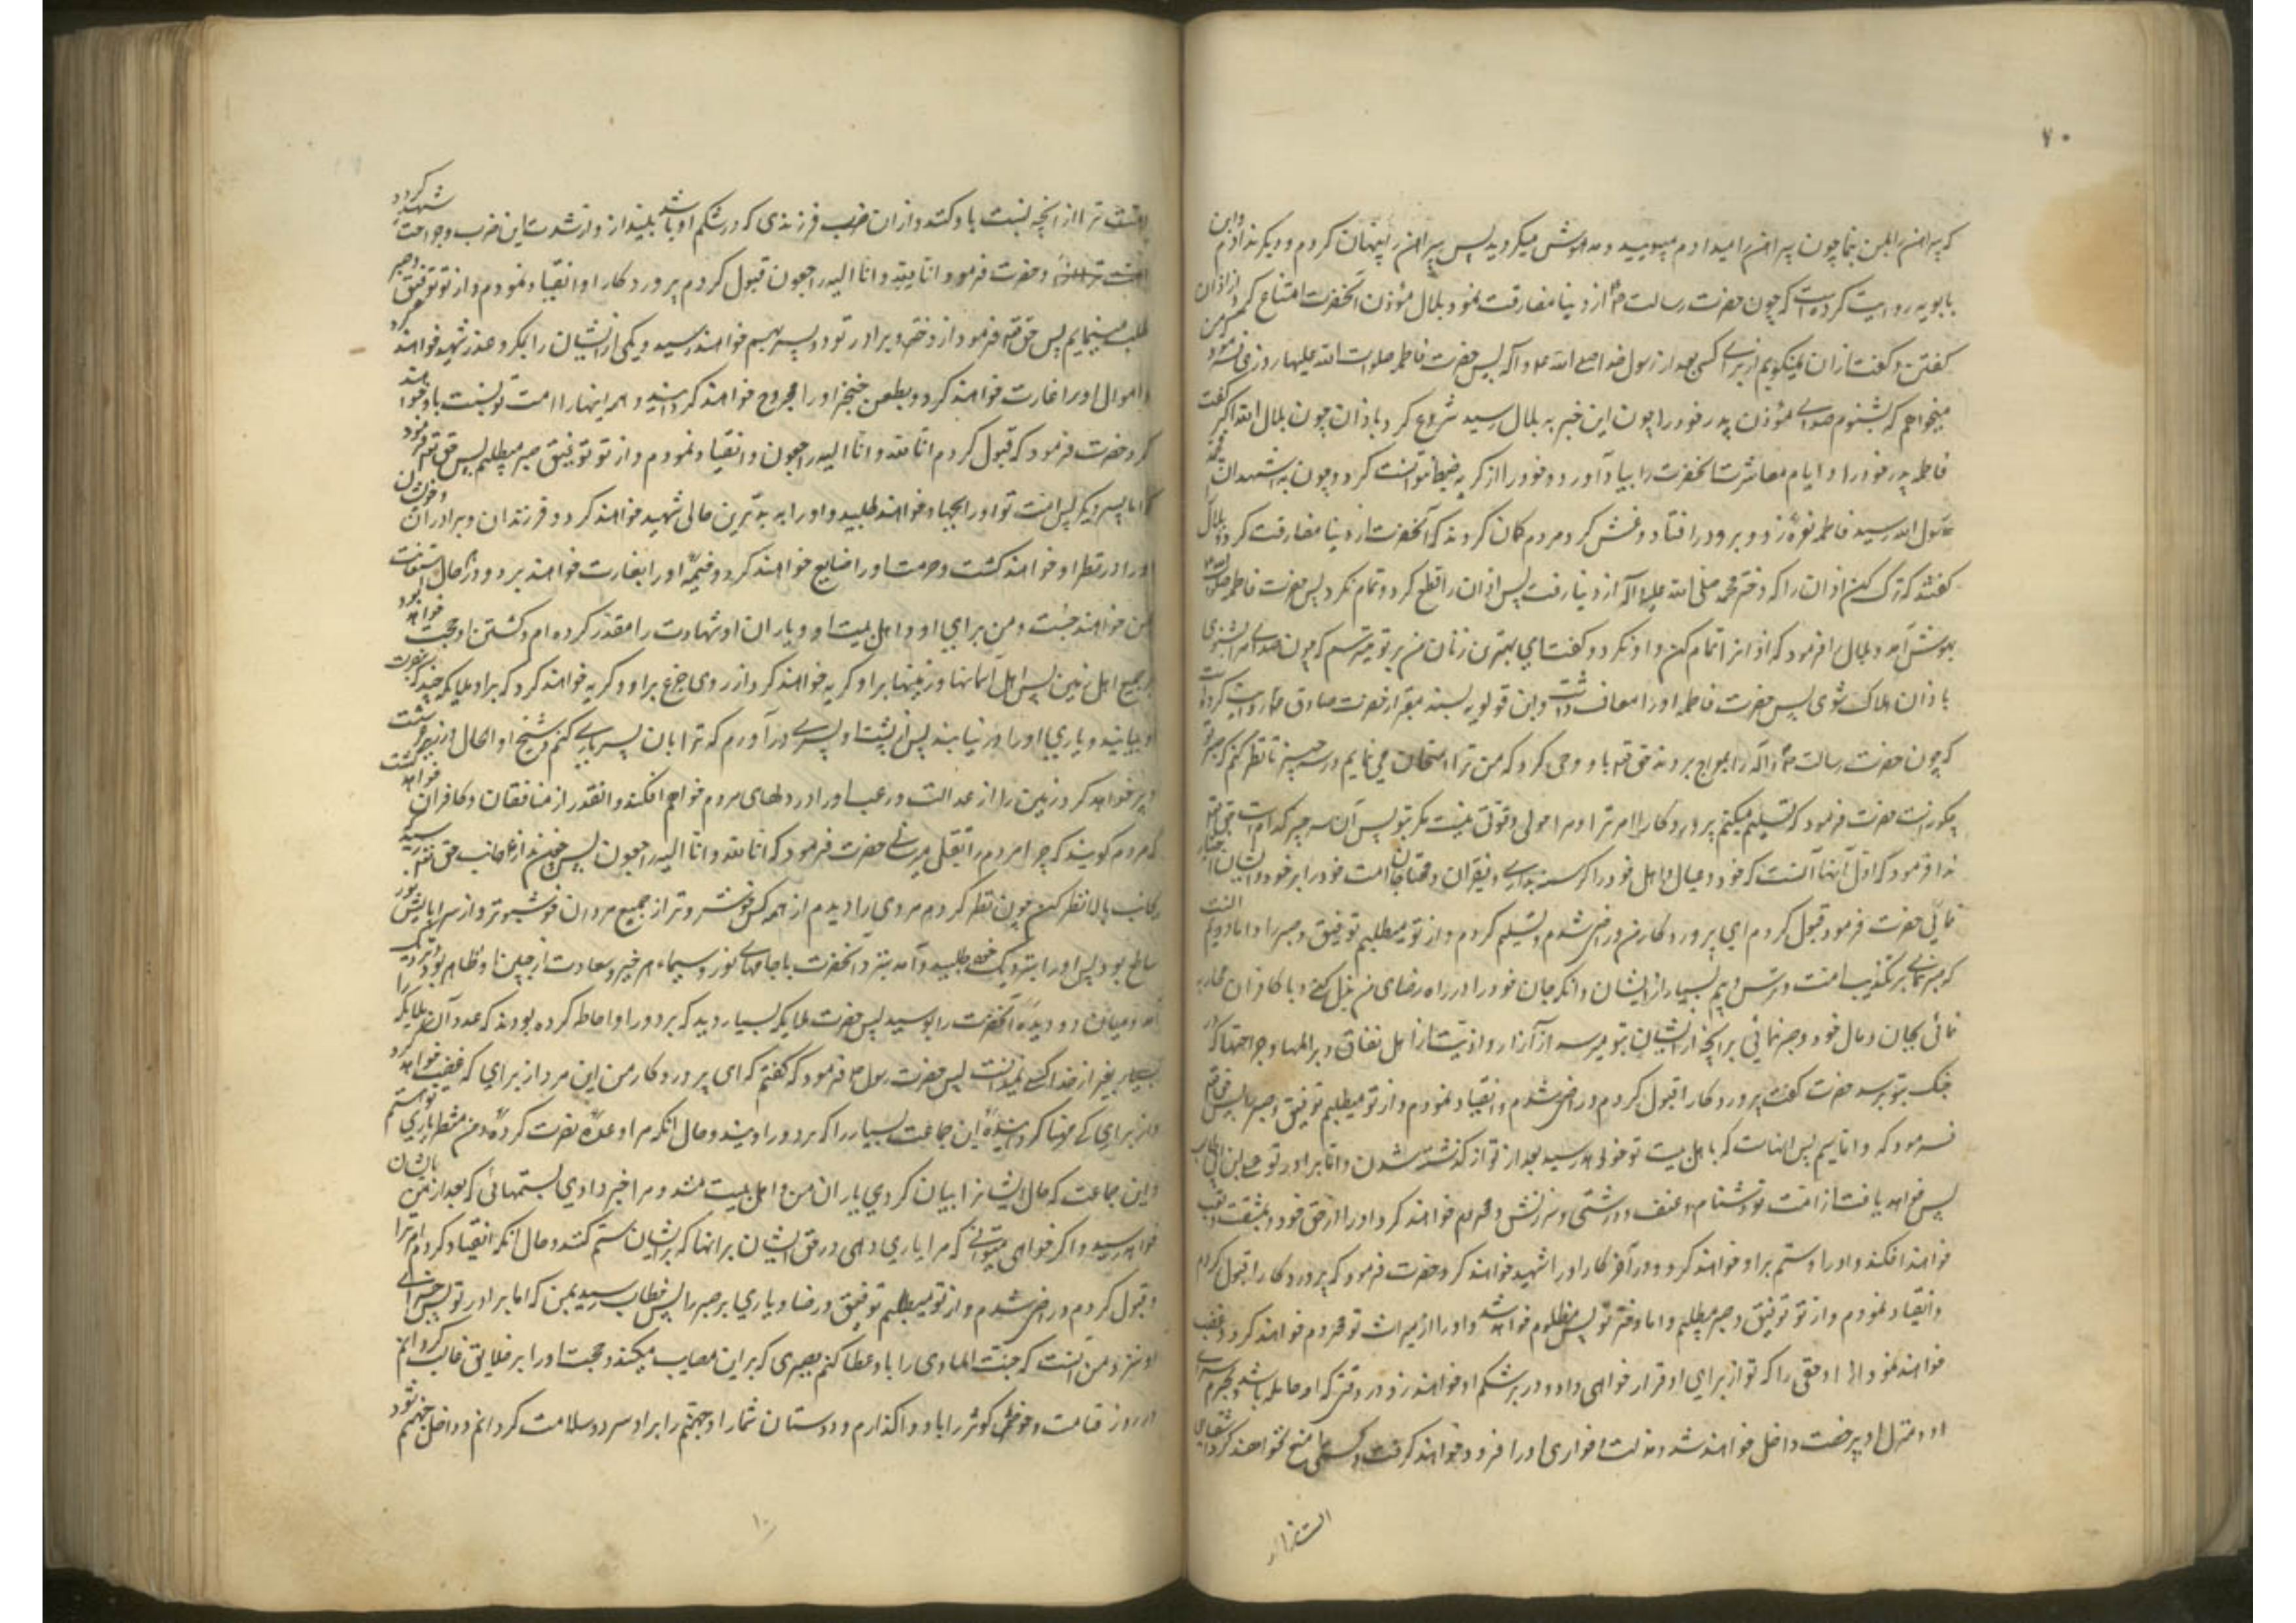 ۷۰
که پیراهن را بمن بنما چون پیراهن را میدادم میبویید و مدهوش میگردید پس پیراهن را پنهان کردم و دیگر ندادم و ابن
بابویه روایت کرده است که چون حضرت رسالت ص از دنیا مفارقت نمود بلال مؤذن آنحضرت امتناع کرد از اذان
گفتن و گفت اذان نمیگویم از برای کسی بعد از رسول خدا صلی الله علیه و آله پس حضرت فاطمه صلوات الله علیها روزی فرمود که من
میخواهم که بشنوم صدای مؤذن پدر خود را چون این خبر به بلال رسید شروع کرد باذان چون بلال الله اکبر گفت
فاطمه پدر خود را و ایام معاشرت آنحضرت را بیاد آورد و خود را از گریه ضبط نتوانست کرد و چون به اشهد ان محمدا
رسول الله رسید فاطمه نعره زد و برو در افتاد و غش کرد مردم گمان کردند که آنحضرت از دنیا مفارقت کرد و ببلال
گفتند که ترک کن اذان را که دختر محمد صلی الله علیه و آله از دنیا رفت پس اذان را قطع کرد و تمام نکرد پس حضرت فاطمه صلوات الله علیها
بهوش آمد و بلال را فرمود که اذان را تمام کن و او نکرد و گفت ای بهترین زنان من بر تو میترسم که چون صدای مرا بشنوی
باذان هلاک شوی پس حضرت فاطمه او را معاف داشت و ابن قولویه بسند معتبر از حضرت صادق ع روایت کرده است
که چون حضرت رسالت ص را بمعراج بردند حق تعالی باو وحی کرد که من ترا امتحان می نمایم در سه چیز تا نظر کنم که صبر تو
چگونه است حضرت فرمود که تسلیم میکنم پروردگارا امر ترا و مرا حول و قوتی نیست مگر بتو پس آن سه چیز کدام است حق تعالی
ندا فرمود که اول آنها آنست که خود و عیال و اهل خود را گرسنه بداری و فقیران و محتاجان امت خود را بر خود و ایشان اختیار
نمائی حضرت فرمود قبول کردم ای پروردگار من و راضی شدم و تسلیم کردم و از تو میطلبم توفیق و صبر را و اما دویم آنست
که صبر نمائی بر تکذیب امت و ترس و بیم بسیار از ایشان و آنکه جان خود را در راه رضای من بذل کنی و با کافران محاربه
نمائی بجان و مال خود و صبر نمائی بر آنچه از ایشان بتو میرسد از آزار و اذیت و از اهل نفاق و بر المها و جراحتها که در
جنگ بتو برسد حضرت گفت پروردگارا قبول کردم و راضی شدم و انقیاد نمودم و از تو میطلبم توفیق و صبر را پس حق تعالی
فرمود که و اما سیم پس آنهاست که باهل بیت تو خواهد رسید بعد از تو از کشته شدن و اما برادر تو علی بن ابی طالب
پس خواهد یافت از امت تو دشنام و عنف و درشتی و سرزنش و محروم خواهند کرد او را از حق خود و بمشقت و تعب
خواهند افکند و او را و ستم بر او خواهند کرد و در آخر کار او را شهید خواهند کرد حضرت فرمود که پروردگارا قبول کردم
و انقیاد نمودم و از تو توفیق و صبر میطلبم و اما دختر تو پس مظلوم خواهد شد و او را از میراث تو محروم خواهند کرد و غصب
خواهند نمود از او حقی را که تو از برای او قرار خواهی داد و در بر شکم او خواهند زد در وقتی که او حامله باشد و بحرم سرای
او و منزل او بیرخصت داخل خواهند شد و مذلت و خواری او را فرو خواهد گرفت و کسی مانع نخواهد کرد اشقیای
امت ترا از
امت ترا از آنچه نسبت باو کنند و از آن ضرب فرزندی که در شکم او باشد بیندازد و از شدت این ضرب و جراحت شهید گردد
و حضرت فرمود انا لله و انا الیه راجعون قبول کردم پروردگارا و انقیاد نمودم و از تو توفیق و صبر
طلب مینمایم پس حق تعالی فرمود از دختر و برادر تو دو پسر بهم خواهند رسید و یکی از ایشان را بمکر و غدر شهید خواهند کرد
و اموال او را غارت خواهند کرد و بطعن خنجر او را مجروح خواهند گردانید و همه اینها را امت تو نسبت باو خواهند
کرد حضرت فرمود که قبول کردم انا لله و انا الیه راجعون و انقیاد نمودم و از تو توفیق صبر میطلبم پس حق تعالی فرمود
که اما پسر دیگر پس امت تو او را بجهاد خواهند طلبید و او را به بدترین حالی شهید خواهند کرد و فرزندان و برادران و خویشان
او را در نظر او خواهند کشت و حرمت او را ضایع خواهند کرد و خیمه او را بغارت خواهند برد و در آنحال استعانت
من خواهند جست و من برای او و اهل بیت او و یاران او شهادت را مقدر کرده ام و کشتن او حجت خواهد بود
بر جمیع اهل زمین پس اهل آسمانها و زمینها بر او گریه خواهند کرد از روی جزع بر او و گریه خواهند کرد که بر او ملایکه چند که بنصرت
او بیایند و یاری او را در نیابند پس از پشت او پسری در آورم که ترا بان پسر یاری کنم و شبح او الحال در زیر عرش است
و پر خواهد کرد زمین را از عدالت و رعب او را در دلهای مردم خواهم افکند و انقدر از منافقان و کافران خواهد کشت
که مردم گویند که چرا مردم را بقتل میرسانی حضرت فرمود که انا لله و انا الیه راجعون پس ندا از جانب حق تعالی رسید که
بجانب بالا نظر کن چون نظر کردم مردی را دیدم از همه کس خوشروتر از جمیع مردان خوشبوتر و از سراپایش نور
ساطع بود پس او را بنزدیک خود طلبید و آمد بنزد آنحضرت با جامهای نور و سیماء هر خیر و سعادت از جبین او ظاهر بود و نزدیک
آمد و میان دو دیده آنحضرت را بوسید پس حضرت ملایکه بسیار دید که بر دور او احاطه کرده بودند که عدد آن ملایکه را
بغیر از خدا کسی نمیدانست پس حضرت رسول ص فرمود که گفتم که ای پروردگار من این مرد از برای که غضب خواهد کرد
و از برای که مهیا گردانیده این جماعت بسیار را که بر دور او یند و حال آنکه مرا وعده نصرت کرده و من منتظر یاری تو هستم
و این جماعت که حال ایشان را بیان کردی یاران من و اهل بیت منند و مرا خبر دادی بستمهائی که بعد از من بایشان
خواهد رسید و اگر خواهی میتوانی که مرا یاری دهی در حق ایشان بر آنها که بر ایشان ستم کنند و حال آنکه انقیاد کردم امر ترا
و قبول کردم و راضی شدم و از تو میطلبم توفیق و رضا و یاری بر صبر را پس خطاب رسید بمن که اما برادر تو پس جزای
او نزد من آنست که جنت الماوی را باو عطا کنم بصبری که بر این مصایب میکند و حجت او را بر خلایق غالب گردانم
در روز قیامت و حوض کوثر را باو واگذارم و دوستان شما را و جهنم را بر او سرد و سلامت گردانم و داخل جهنم شود
۱۰